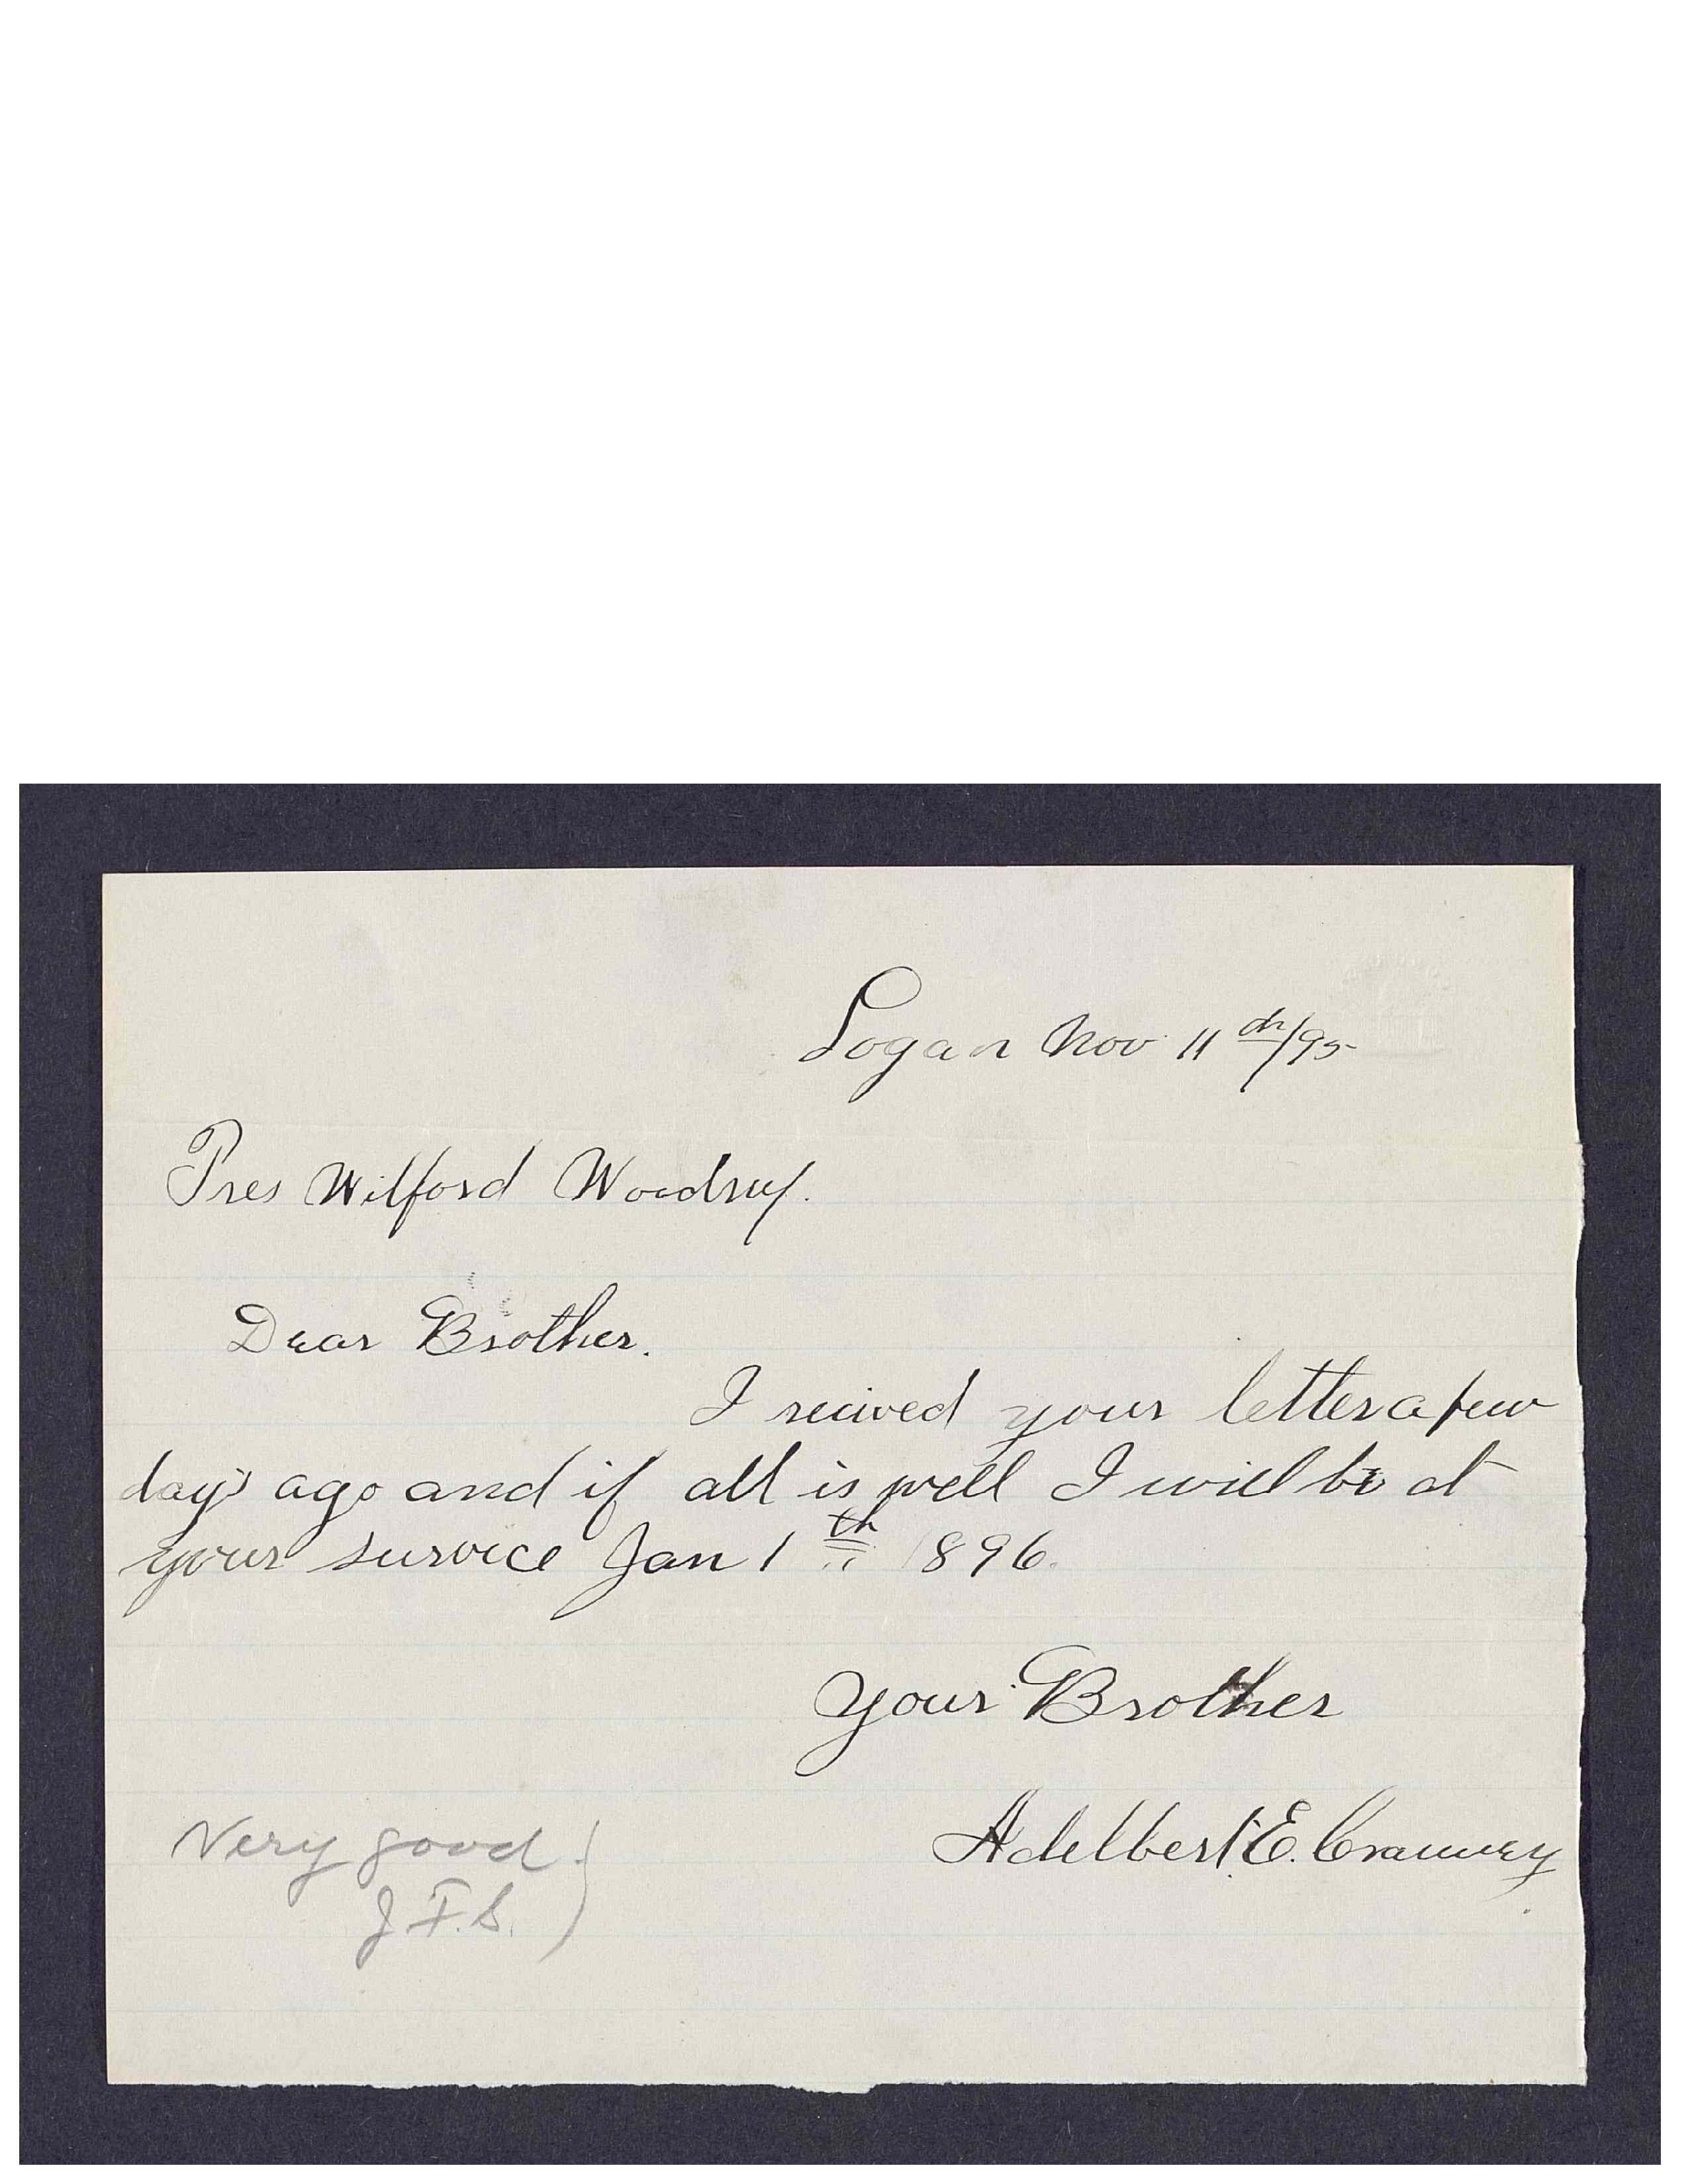 Logan Nov 11th/95
Pres Wilford Woodruf.
Dear Brother.
I recived your letter a few
days ago and if all is well I will be at
your survice Jan 1th 1896.
Your Brother
Adelbert E. Cranney
Very good.
J. F. S.